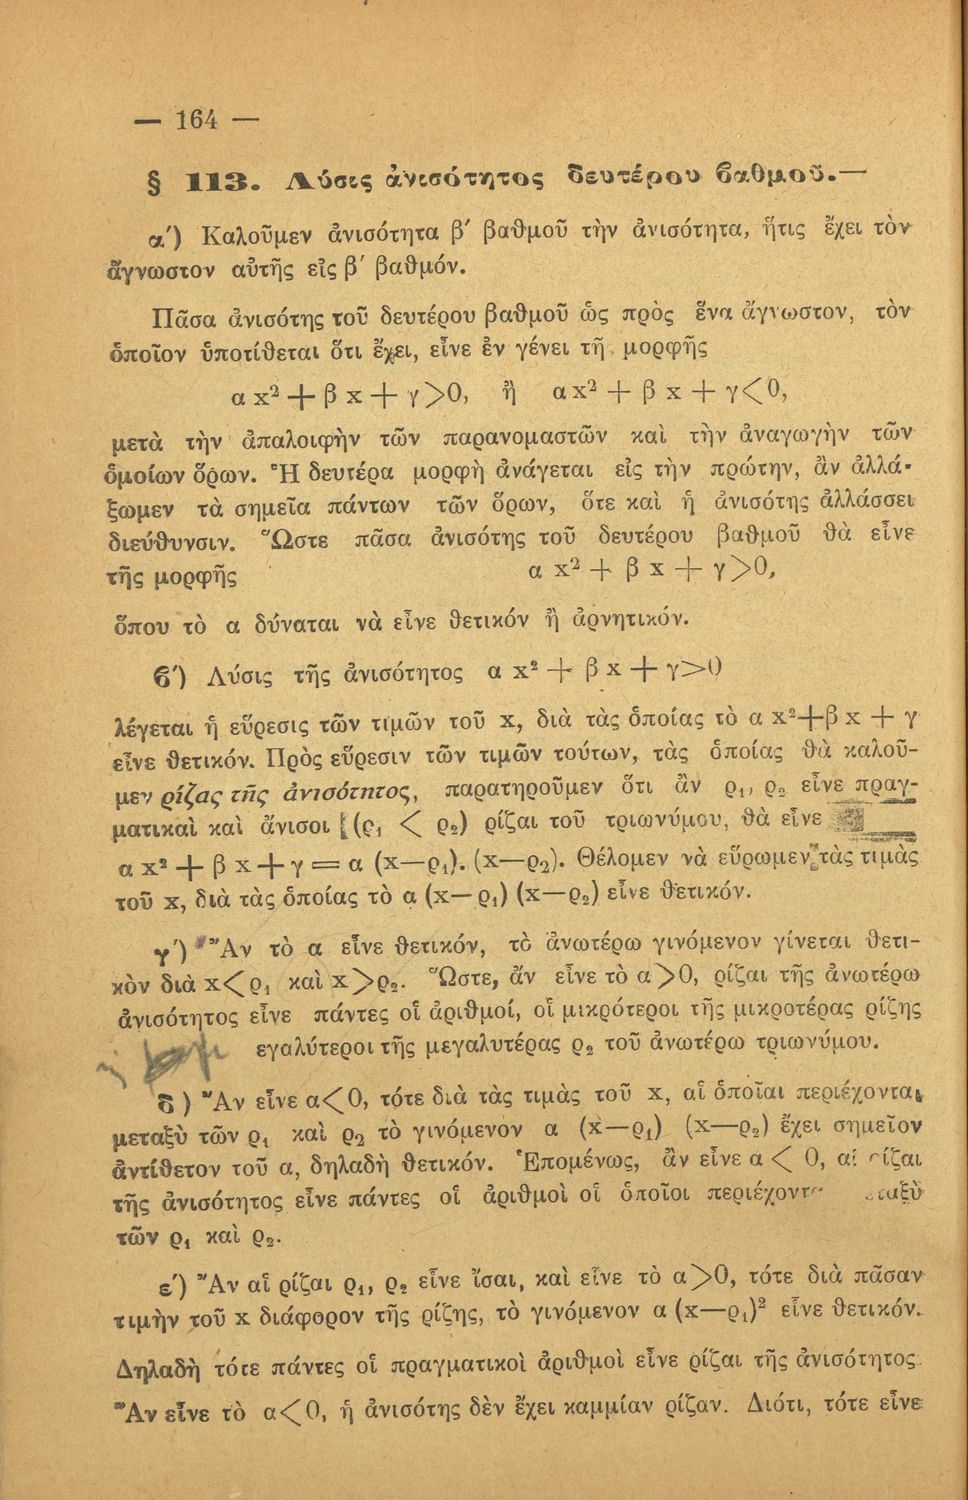 — 164 —
§ 113. Λύσις ἀνισότητος δευτέρου βαθμοῦ.—
α΄) Καλοῦμεν ἀνισότητα β΄ βαθμοῦ τὴν ἀνισότητα, ἥτις ἔχει τὸν
ἄγνωστον αὐτῆς εἰς β΄ βαθμόν.
Πᾶσα ἀνισότης τοῦ δευτέρου βαθμοῦ ὡς πρὸς ἕνα ἄγνωστον, τὸν
ὁποῖον ὑποτίθεται ὅτι ἔχει, εἶνε ἐν γένει τῆς μορφῆς
α x² + β x + γ > 0, ἢ α x² + β x + γ < 0,
μετὰ τὴν ἀπαλοιφὴν τῶν παρανομαστῶν καὶ τὴν ἀναγωγὴν τῶν
ὁμοίων ὅρων. Ἡ δευτέρα μορφὴ ἀνάγεται εἰς τὴν πρώτην, ἂν ἀλλά-
ξωμεν τὰ σημεῖα πάντων τῶν ὅρων, ὅτε καὶ ἡ ἀνισότης ἀλλάσσει
διεύθυνσιν. Ὥστε πᾶσα ἀνισότης τοῦ δευτέρου βαθμοῦ θὰ εἶνε
τῆς μορφῆς α x² + β x + γ > 0,
ὅπου τὸ α δύναται νὰ εἶνε θετικόν ἢ ἀρνητικόν.
β΄) Λύσις τῆς ἀνισότητος α x² + β x + γ > 0
λέγεται ἡ εὕρεσις τῶν τιμῶν τοῦ x, διὰ τὰς ὁποίας τὸ α x² + β x + γ
εἶνε θετικόν. Πρὸς εὕρεσιν τῶν τιμῶν τούτων, τὰς ὁποίας θὰ καλοῦ-
μεν ρίζας τῆς ἀνισότητος, παρατηροῦμεν ὅτι ἂν ρ₁, ρ₂ εἶνε πραγ-
ματικαὶ καὶ ἄνισοι (ρ₁ < ρ₂) ρίζαι τοῦ τριωνύμου, θὰ εἶνε
α x² + β x + γ = α (x—ρ₁). (x—ρ₂). Θέλομεν νὰ εὕρωμεν τὰς τιμὰς
τοῦ x, διὰ τὰς ὁποίας τὸ α (x—ρ₁) (x—ρ₂) εἶνε θετικόν.
γ΄) Ἂν τὸ α εἶνε θετικόν, τὸ ἀνωτέρω γινόμενον γίνεται θετι-
κὸν διὰ x < ρ₁ καὶ x > ρ₂. Ὥστε, ἄν εἶνε τὸ α > 0, ρίζαι τῆς ἀνωτέρω
ἀνισότητος εἶνε πάντες οἱ ἀριθμοί, οἱ μικρότεροι τῆς μικροτέρας ρίζης
εγαλύτεροι τῆς μεγαλυτέρας ρ₂ τοῦ ἀνωτέρω τριωνύμου.
δ ) Ἂν εἶνε α < 0, τότε διὰ τὰς τιμὰς τοῦ x, αἱ ὁποῖαι περιέχονται
μεταξὺ τῶν ρ₁ καὶ ρ₂ τὸ γινόμενον α (x—ρ₁) (x—ρ₂) ἔχει σημεῖον
ἀντίθετον τοῦ α, δηλαδὴ θετικόν. Ἐπομένως, ἂν εἶνε α < 0, αἱ ρίζαι
τῆς ἀνισότητος εἶνε πάντες οἱ ἀριθμοὶ οἱ ὁποῖοι
τῶν ρ₁ καὶ ρ₂.
ε΄) Ἂν αἱ ρίζαι ρ₁, ρ₂ εἶνε ἴσαι, καὶ εἶνε τὸ α > 0, τότε διὰ πᾶσαν
τιμὴν τοῦ x διάφορον τῆς ρίζης, τὸ γινόμενον α (x—ρ₁)² εἶνε θετικόν.
Δηλαδὴ τότε πάντες οἱ πραγματικοὶ ἀριθμοὶ εἶνε ρίζαι τῆς ἀνισότητος.
Ἂν εἶνε τὸ α < 0, ἡ ἀνισότης δὲν ἔχει καμμίαν ρίζαν. Διότι, τότε εἶνε